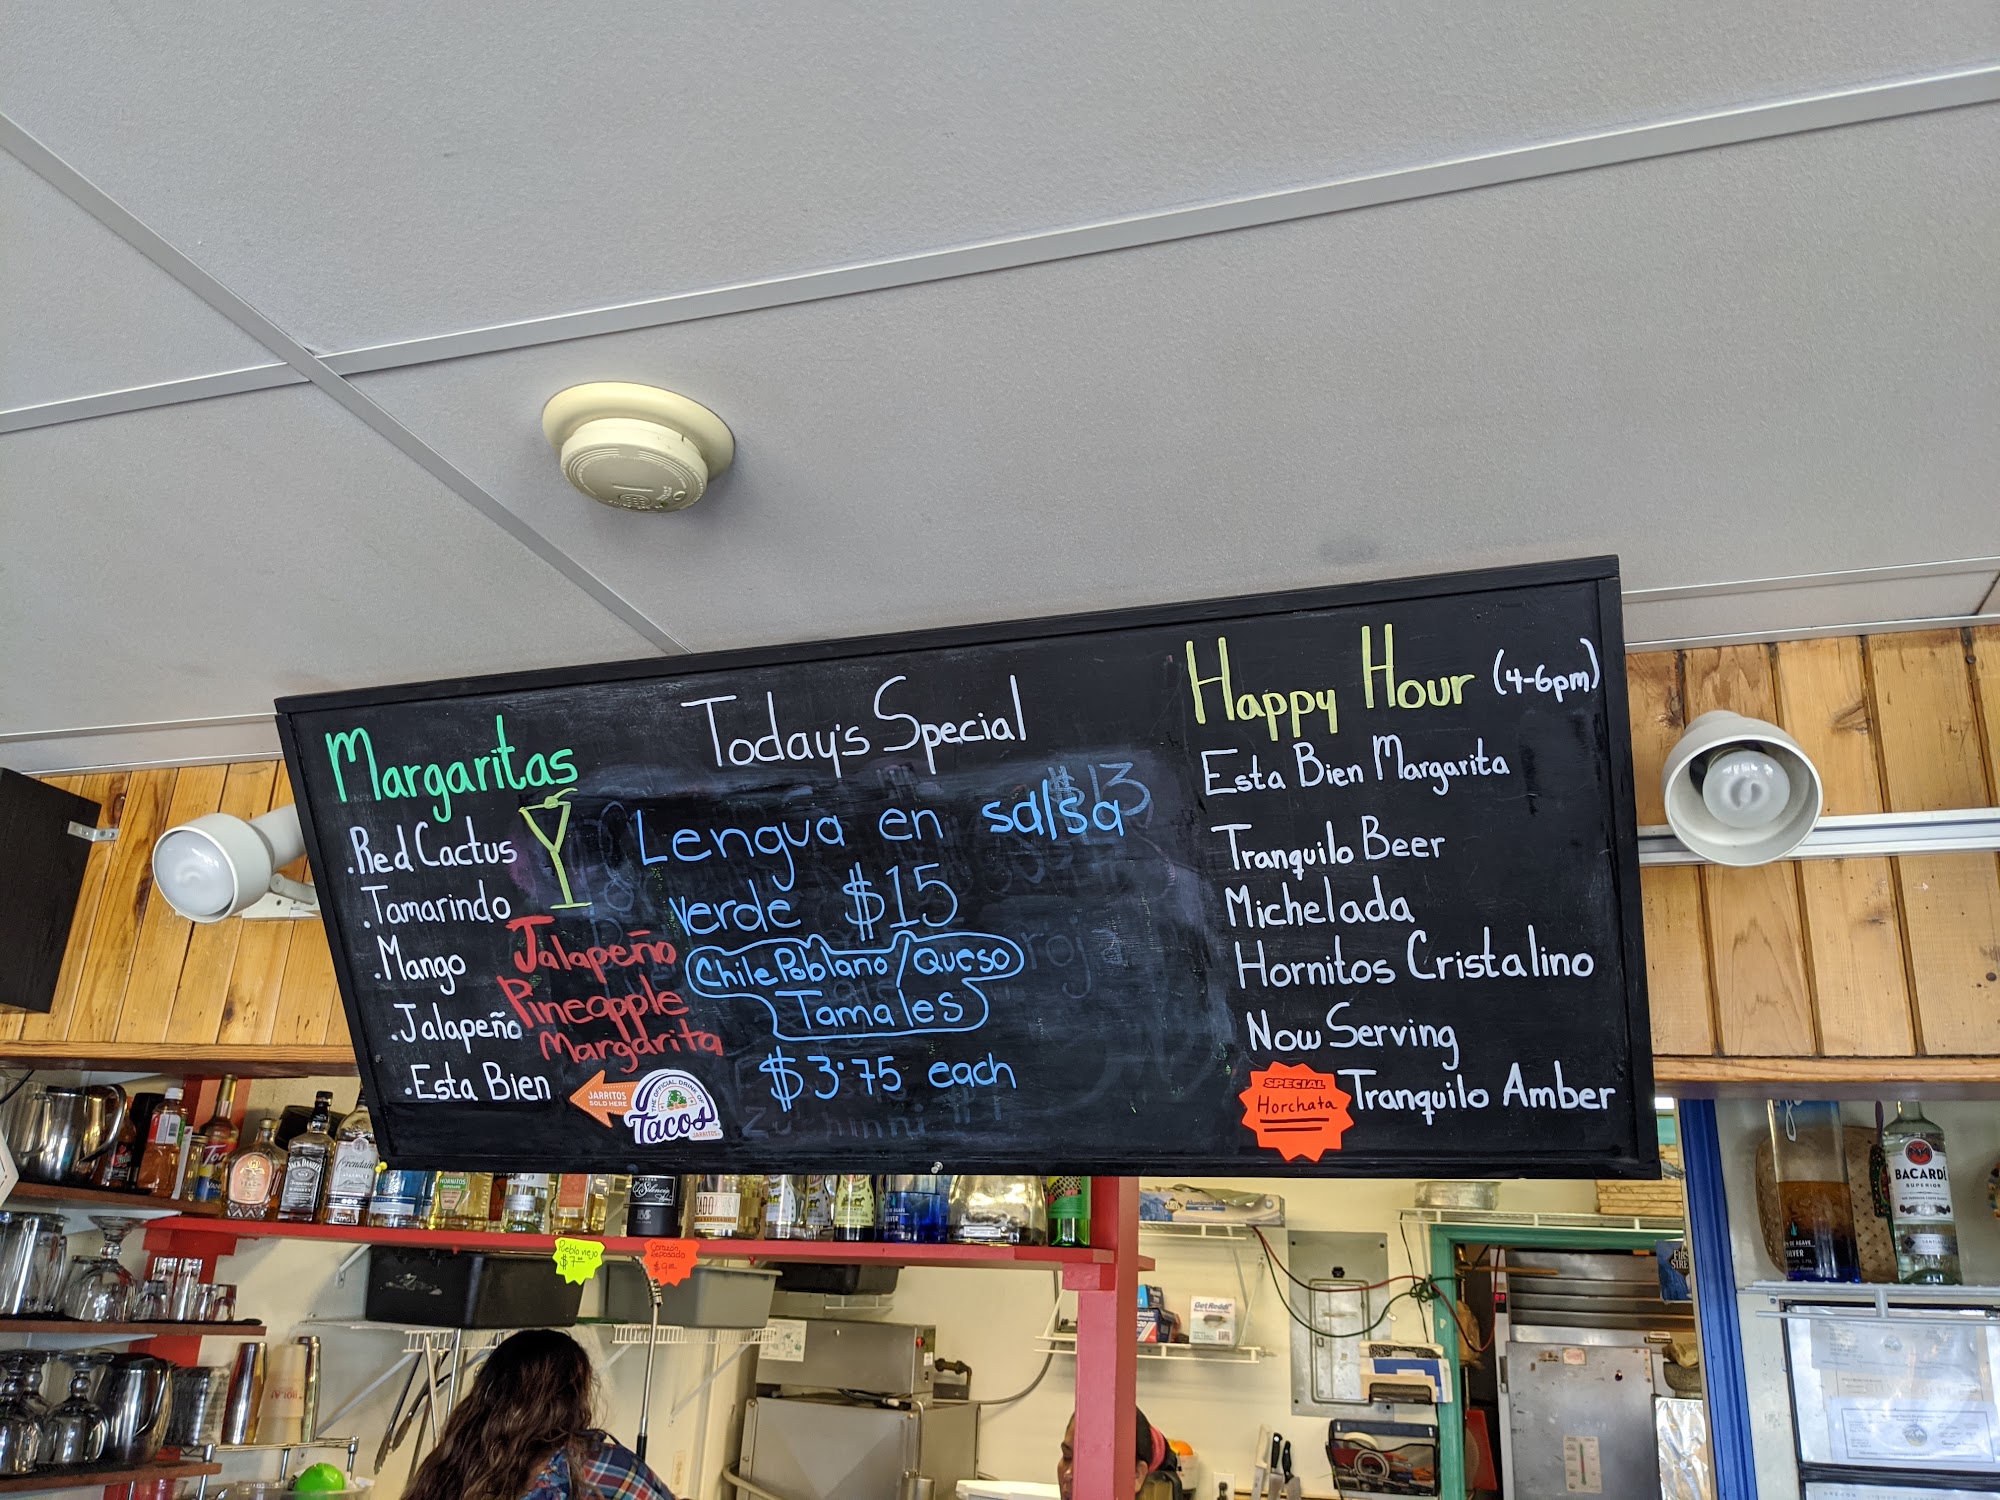 Margaritas
.Red Cactus
.Tamarindo
.Mango
.Jalapeño
.Esta Bien
Jalapeño
Pineapple
Margarita
JARRITOS
SOLD HERE
THE OFFICIAL DRINK OF
Tacos
JARRITOS
Today's Special
$13
Lengua en salsa
verde $15
Chile Poblano/Queso
Tamales
$3.75 each
Happy Hour (4-6pm)
Esta Bien Margarita
Tranquilo Beer
Michelada
Hornitos Cristalino
Now Serving
Tranquilo Amber
SPECIAL
Horchata
JACK DANIEL'S
HORNITOS
Pueblo viejo
$7.00
Corazón
Reposado
$9.00
Get Reddi
BACARDÍ
SUPERIOR
SILVER